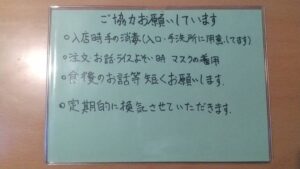 ご協力お願いしています
○入店時手の消毒(入口・手洗所に用意してます)
○注文・お話・ライスよそい時 マスクの着用
○食後のお話等 短くお願いします。
○定期的に換気させていただきます。